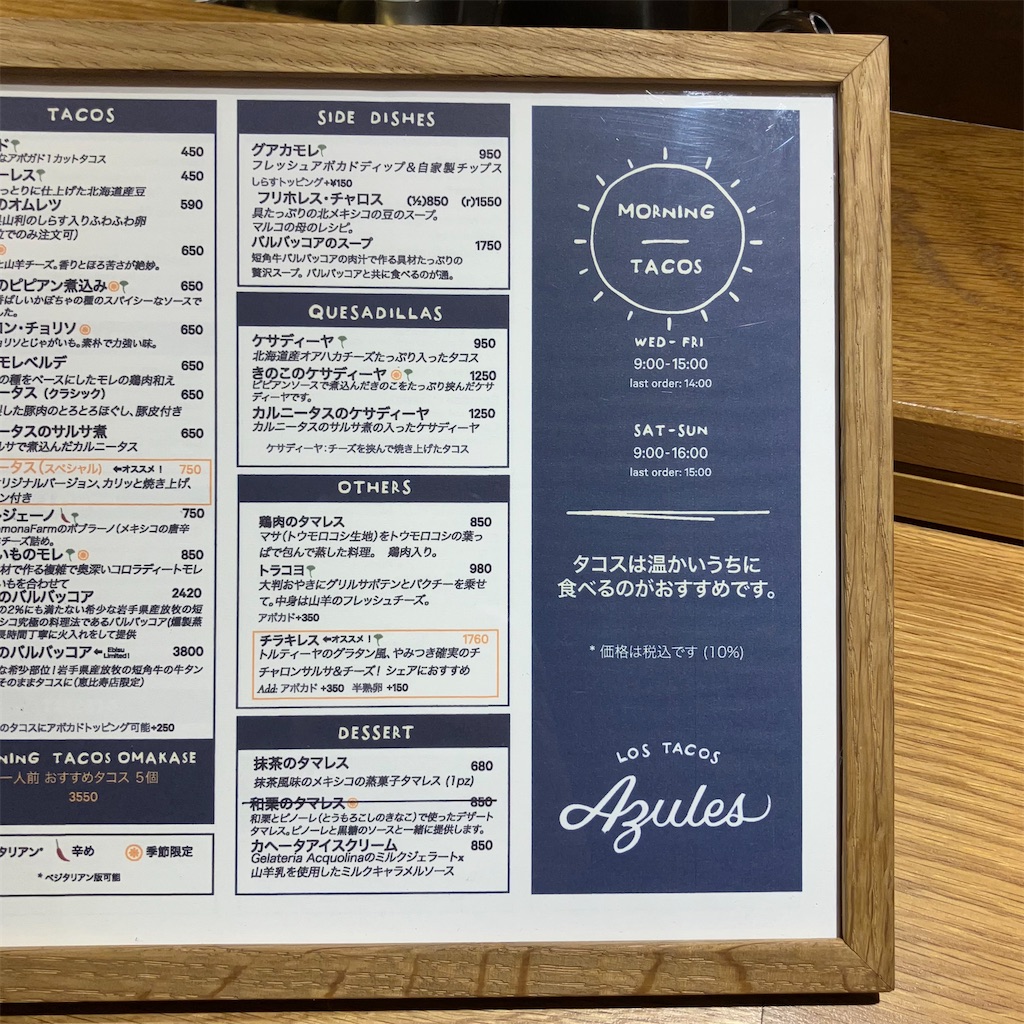 TACOS
ド
450
なアボガド1カットタコス
ーレス
450
っとりに仕上げた北海道産豆
のオムレツ
590
山利のしらす入りふわふわ卵
位でのみ注文可)
650
と山羊チーズ。香りとほろ苦さが絶妙。
のピピアン煮込み
650
ばしいかぼちゃの種のスパイシーなソースで
した。
ロン・チョリソ
650
ョリソとじゃがいも。素朴で力強い味。
モレベルデ
650
の種をベースにしたモレの鶏肉和え
ータス (クラシック)
650
した豚肉のとろとろほぐし、豚皮付き
ータスのサルサ煮
650
ルサで煮込んだカルニータス
ータス(スペシャル) ⇐オススメ! 750
リジナルバージョン、カリッと焼き上げ、
ン付き
・ジェーノ
750
emonaFarmのポブラーノ(メキシコの唐辛
チーズ詰め。
いものモレ
850
材で作る複雑で奥深いコロラディートモレ
いもを合わせて
のバルバッコア
2420
の2%にも満たない希少な岩手県産放牧の短
シコ究極の料理法であるバルバッコア(燻製蒸
長時間丁寧に火入れをして提供
のバルバッコア ← Ebisu Limited!
3800
な希少部位!岩手県産放牧の短角牛の牛タン
そのままタコスに(恵比寿店限定)
のタコスにアボカドトッピング可能+250
NING TACOS OMAKASE
一人前 おすすめタコス 5個
3550
タリアン* 辛め 季節限定
* ベジタリアン版可能
SIDE DISHES
グアカモレ
950
フレッシュアボカドディップ&自家製チップス
しらすトッピング+¥150
フリホレス・チャロス (½)850 (r)1550
具たっぷりの北メキシコの豆のスープ。
マルコの母のレシピ。
バルバッコアのスープ
1750
短角牛バルバッコアの肉汁で作る具材たっぷりの
贅沢スープ。バルバッコアと共に食べるのが通。
QUESADILLAS
ケサディーヤ
950
北海道産オアハカチーズたっぷり入ったタコス
きのこのケサディーヤ
1250
ピピアンソースで煮込んだきのこをたっぷり挟んだケサ
ディーヤです。
カルニータスのケサディーヤ
1250
カルニータスのサルサ煮の入ったケサディーヤ
ケサディーヤ:チーズを挟んで焼き上げたタコス
OTHERS
鶏肉のタマレス
850
マサ(トウモロコシ生地)をトウモロコシの葉っ
ぱで包んで蒸した料理。 鶏肉入り。
トラコヨ
980
大判おやきにグリルサボテンとパクチーを乗せ
て。中身は山羊のフレッシュチーズ。
アボカド+350
チラキレス ⇐オススメ! 1760
トルティーヤのグラタン風、やみつき確実のチ
チャロンサルサ&チーズ! シェアにおすすめ
Add: アボカド +350 半熟卵 +150
DESSERT
抹茶のタマレス
680
抹茶風味のメキシコの蒸菓子タマレス (1pz)
和栗のタマレス
850
和栗とピノーレ(とうもろこしのきなこ)で使ったデザート
タマレス。ピノーレと黒糖のソースと一緒に提供します。
カヘータアイスクリーム
850
Gelateria Acquolinaのミルクジェラートx
山羊乳を使用したミルクキャラメルソース
MORNING
TACOS
WED-FRI
9:00-15:00
last order: 14:00
SAT-SUN
9:00-16:00
last order: 15:00
タコスは温かいうちに
食べるのがおすすめです。
* 価格は税込です (10%)
LOS TACOS
Azules